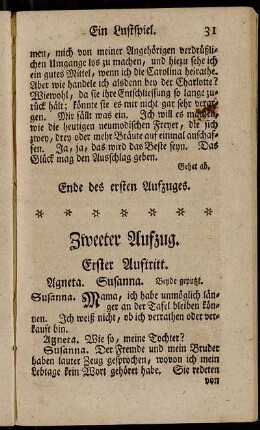 Ein Lustspiel. 31
men, mich von meiner Angehörigen verdrüßli-
chen Umgange los zu machen, und hiezu sehe ich
ein gutes Mittel, wenn ich die Carolina heirathe.
Aber wie handele ich alsdenn bey der Charlotte?
Wiewohl, da sie ihre Entschliessung so lange zu-
rück hält; könnte sie es mir nicht gar sehr verar-
gen. Mir fällt was ein. Ich will es machen,
wie die heutigen neumodischen Freyer, die sich
zwey, drey oder mehr Bräute auf einmal anschaf-
fen. Ja, ja, das wird das Beste seyn. Das
Glück mag den Ausschlag geben.
Gehet ab.
Ende des ersten Aufzuges.
* * * * * * *
Zweeter Aufzug.
Erster Auftritt.
Agneta. Susanna. Beyde geputzt.
Susanna. Mama, ich habe unmöglich län-
ger an der Tafel bleiben kön-
nen. Ich weiß nicht, ob ich verrathen oder ver-
kauft bin.
Agneta. Wie so, meine Tochter?
Susanna. Der Fremde und mein Bruder
haben lauter Zeug gesprochen, wovon ich mein
Lebtage kein Wort gehöret habe. Sie redeten
von